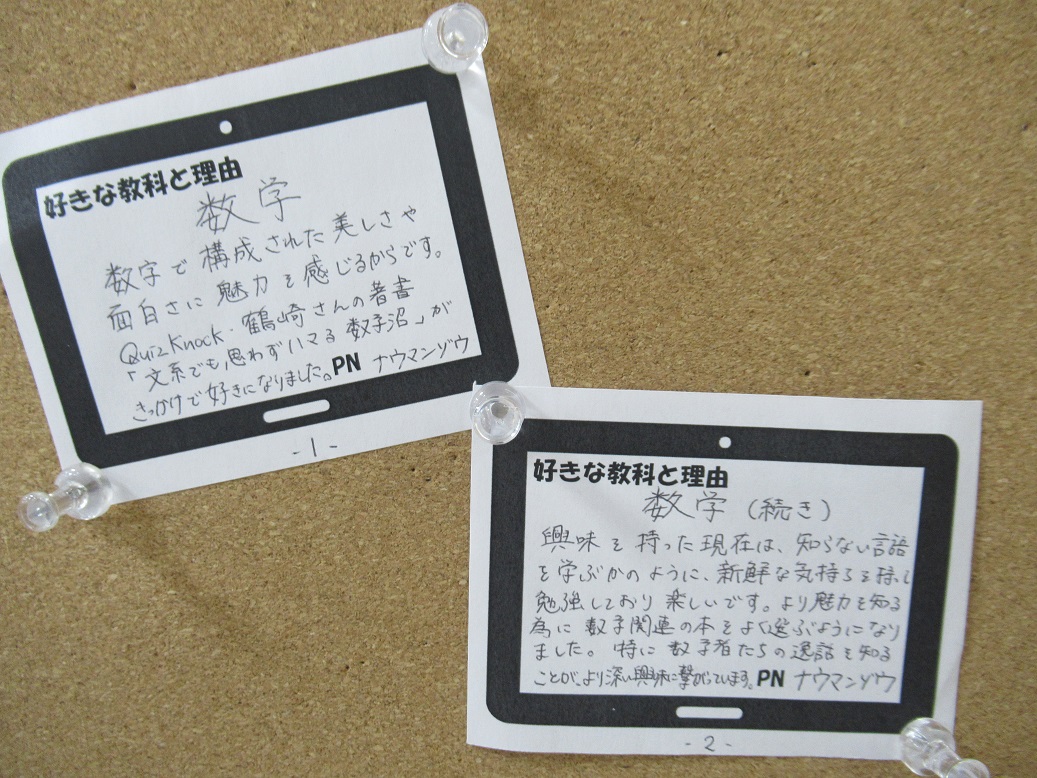 好きな教科と理由
数学
数字で構成された美しさや
面白さに魅力を感じるからです。
QuizKnock・鶴崎さんの著書
「文系でも思わずハマる数学沼」が
きっかけで好きになりました。PN ナウマンゾウ
-1-
好きな教科と理由
数学(続き)
興味を持った現在は、知らない言語
を学ぶかのように、新鮮な気持ちを持し
勉強しており楽しいです。より魅力を知る
為に数学関連の本をよく選ぶようになり
ました。特に数学者たちの逸話を知る
ことが、より深い興味に繋がっています。PN ナウマンゾウ
-2-